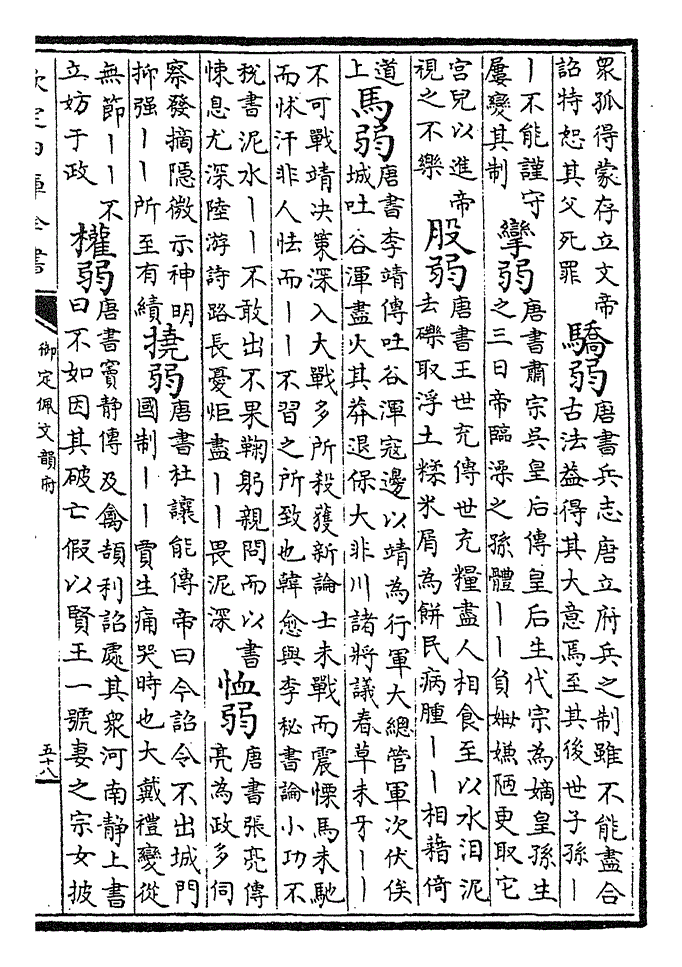 眾孤得蒙存立文帝
詔特恕其父死罪
驕弱
唐書兵志唐立府兵之制雖不能盡合
古法益得其大意焉至其後世子孫丨
丨不能謹守
屢變其制
孿弱
唐書肅宗吳皇后傳皇后生代宗為嫡皇孫生
之三日帝臨澡之孫體丨丨負姆嫌陋更取它
宮兒以進帝
視之不樂
股弱
唐書王世充傳世充糧盡人相食至以水汩泥
去礫取浮土糅米屑為餅民病腫丨丨相藉倚
道
上
馬弱
唐書李靖傳吐谷渾寇邊以靖為行軍大總管軍次伏俟
城吐谷渾盡火其莽退保大非川諸將議春草未牙丨丨
不可戰靖決策深入大戰多所殺獲新論士未戰而震慄馬未馳
而怵汗非人怯而丨丨不習之所致也韓愈與李秘書論小功不
稅書泥水丨丨不敢出不果鞠躬親問而以書
悚息尤深陸游詩路長憂炬盡丨丨畏泥深
恤弱
唐書張亮傳
亮為政多伺
察發摘隱微示神明
抑强丨丨所至有績
撓弱
唐書杜讓能傳帝曰今詔令不出城門
國制丨丨賈生痛哭時也大戴禮變從
無節丨丨不
立妨于政
權弱
唐書竇靜傳及禽頡利詔處其眾河南靜上書
曰不如因其破亡假以賢王一號妻之宗女披
欽定四庫全書
御定佩文韻府
五十八